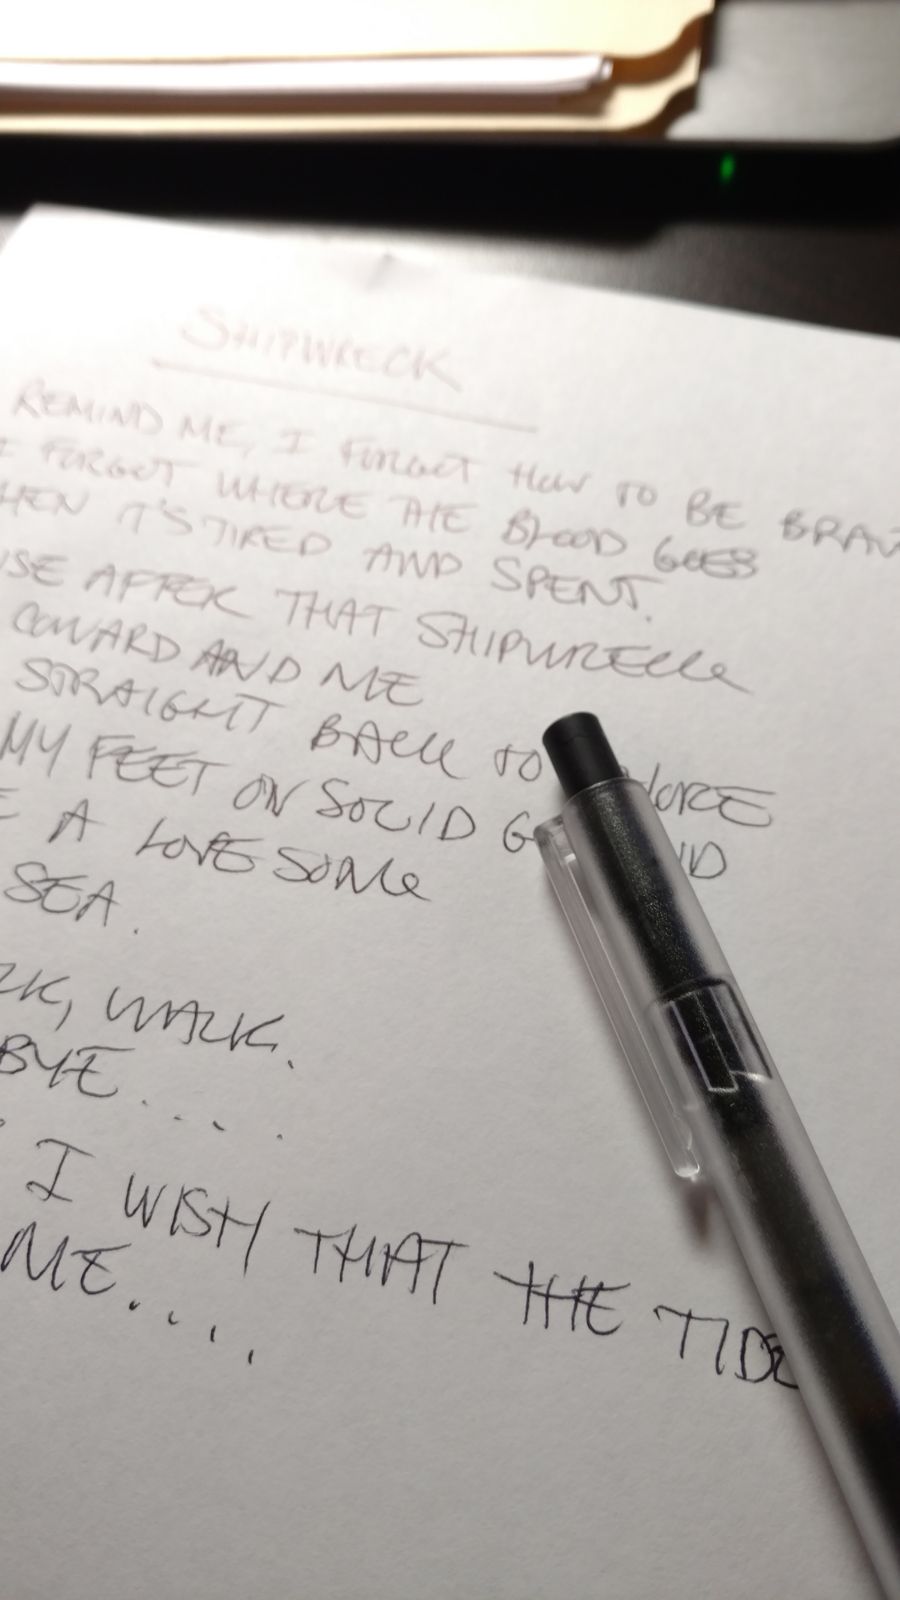 SHIPWRECK
REMIND ME, I FORGOT HOW TO BE BRAV
I FORGOT WHERE THE BLOOD GOES
HEN IT'S TIRED AND SPENT.
USE AFTER THAT SHIPWRECK
COWARD AND ME
STRAIGHT BACK TO
MY FEET ON SOLID
A LOVE SONG
SEA.
WALK.
BYE....
I WISH THAT THE TIDE
ME....